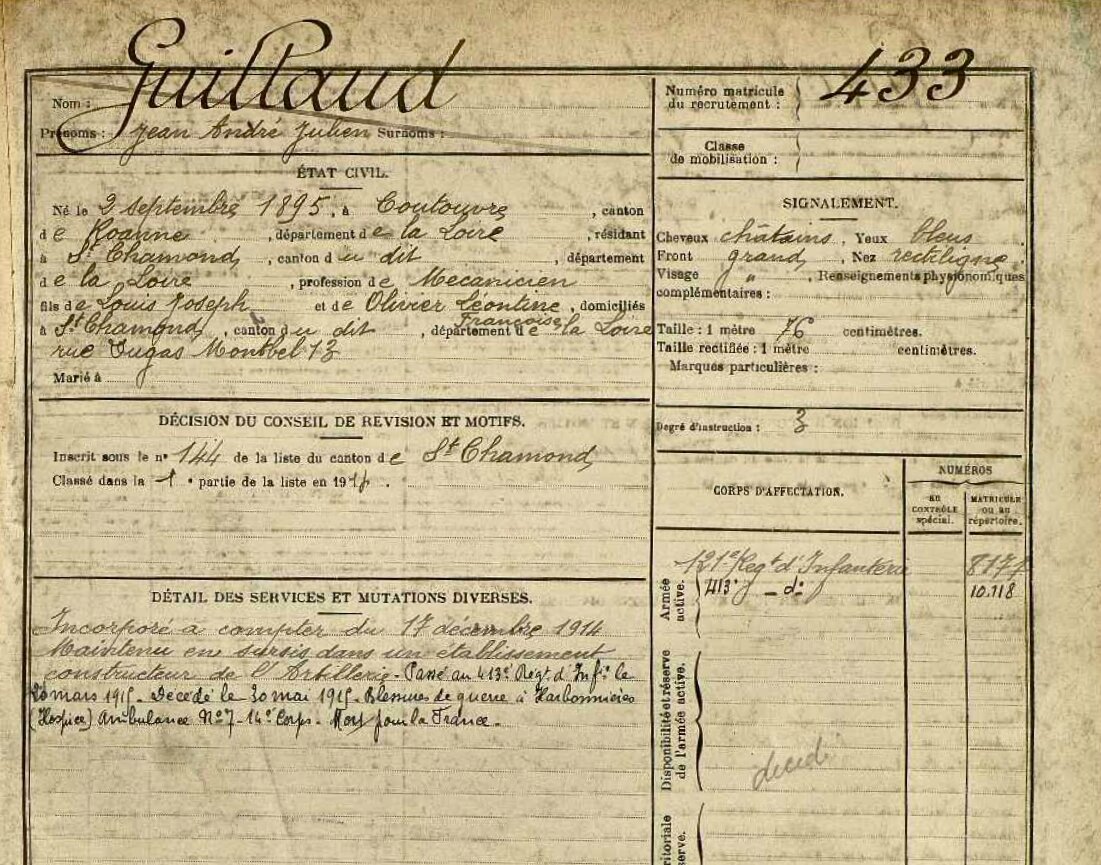 Nom : Guillaud
Prénoms : Jean André Julien Surnoms :
ÉTAT CIVIL.
Né le 2 septembre 1895, à Coutouvre, canton
de Roanne, département de la Loire, résidant
à St Chamond, canton du dit, département
de la Loire, profession de Mecanicien
fils de Louis Joseph et de Olivier Léontine Françoise, domiciliés
à St Chamond, canton du dit, département de la Loire
rue Dugas Montbel 13
Marié à
DÉCISION DU CONSEIL DE REVISION ET MOTIFS.
Inscrit sous le n° 144 de la liste du canton de St Chamond
Classé dans la 1e partie de la liste en 191
DÉTAIL DES SERVICES ET MUTATIONS DIVERSES.
Incorporé à compter du 17 décembre 1914
Maintenu en sursis dans un établissement
constructeur de l'Artillerie - Passé au 413e Régt. d'Inf ie le
mars 1915 - Décédé le 30 mai 1915 - Blessures de guerre à Harbonnières
(Hospice) Ambulance N° 7 - 14e Corps - Mort pour la France -
Numéro matricule du recrutement : 433
Classe de mobilisation :
SIGNALEMENT.
Cheveux châtains, Yeux bleus
Front grand, Nez rectiligne
Visage " , Renseignements physionomiques
complémentaires :
Taille : 1 mètre 76 centimètres.
Taille rectifiée : 1 mètre centimètres.
Marques particulières :
Degré d'instruction : 3
CORPS D'AFFECTATION.
NUMÉROS
AU CONTRÔLE spécial.
MATRICULE OU AU répertoire.
Armée active.
121e Regt d'Infanterie
413e - do 10.118
Disponibilité et réserve de l'armée active.
décédé